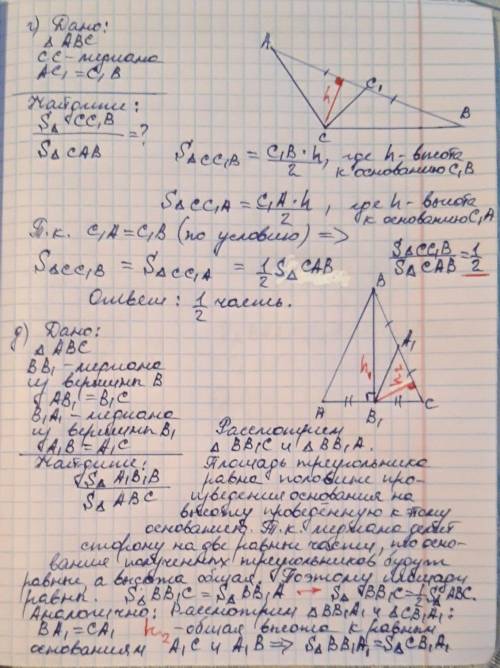 г) Дано:
△ ABC
CC - медиана
AC₁ = C₁B
Найдите:
S△ CC₁B / S△ CAB = ?
A
C₁
h
C
B
S△CC₁B = C₁B·h / 2, где h - высота к основанию C₁B
S△CC₁A = C₁A·h / 2, где h - высота к основанию C₁A
Т.к. C₁A = C₁B (по условию) =>
S△CC₁B = S△CC₁A = 1/2 S△CAB
S△CC₁B / S△CAB = 1/2
Ответ: 1/2 часть.
д) Дано:
△ ABC
BB₁ - медиана
из вершины B
AB₁ = B₁C
B₁A₁ - медиана
из вершины B₁
A₁B = A₁C
Найдите:
S△ A₁B₁B / S△ ABC
B
A₁
h₁
h₂
A
B₁
C
Рассмотрим
△ BB₁C и △ BB₁A.
Площадь треугольника
равна половине про-
изведения основания на
высоту проведённую к этому
основанию. Т.к. медиана делит
сторону на две равные части, то осно-
вания полученных треугольников будут
равные, а высота общая. Поэтому площади
равны. S△BB₁C = S△BB₁A → S△BB₁C = 1/2 S△ABC.
Аналогично: Рассмотрим △BB₁A₁ и △CB₁A₁:
BA₁ = CA₁ h₂ - общая высота к равным
основаниям A₁C и A₁B => S△BB₁A₁ = S△CB₁A₁